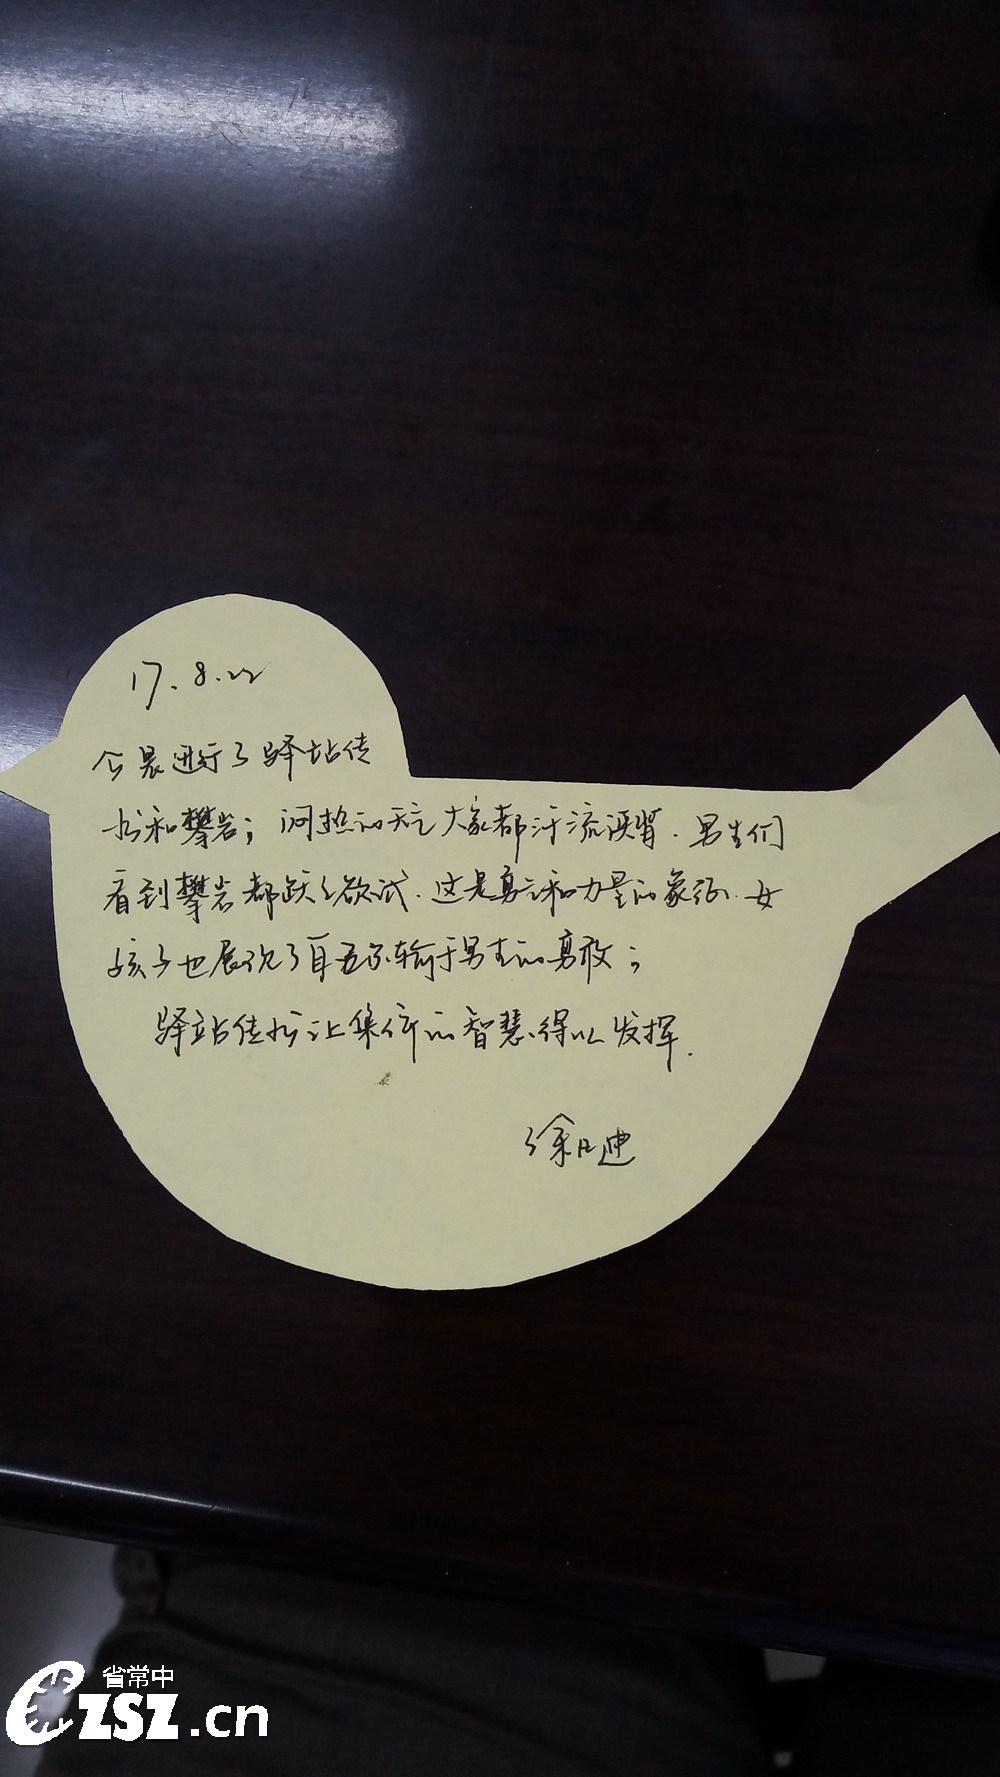 17.8.22
今晨进行了驿站传
书和攀岩；闷热的天气大家都汗流浃背.男生们
看到攀岩都跃跃欲试.这是勇气和力量的象征.女
孩子也展现了自不输于男生的勇敢；
驿站传书让集体的智慧得以发挥.
徐迪
省常中
CZSZ.cn